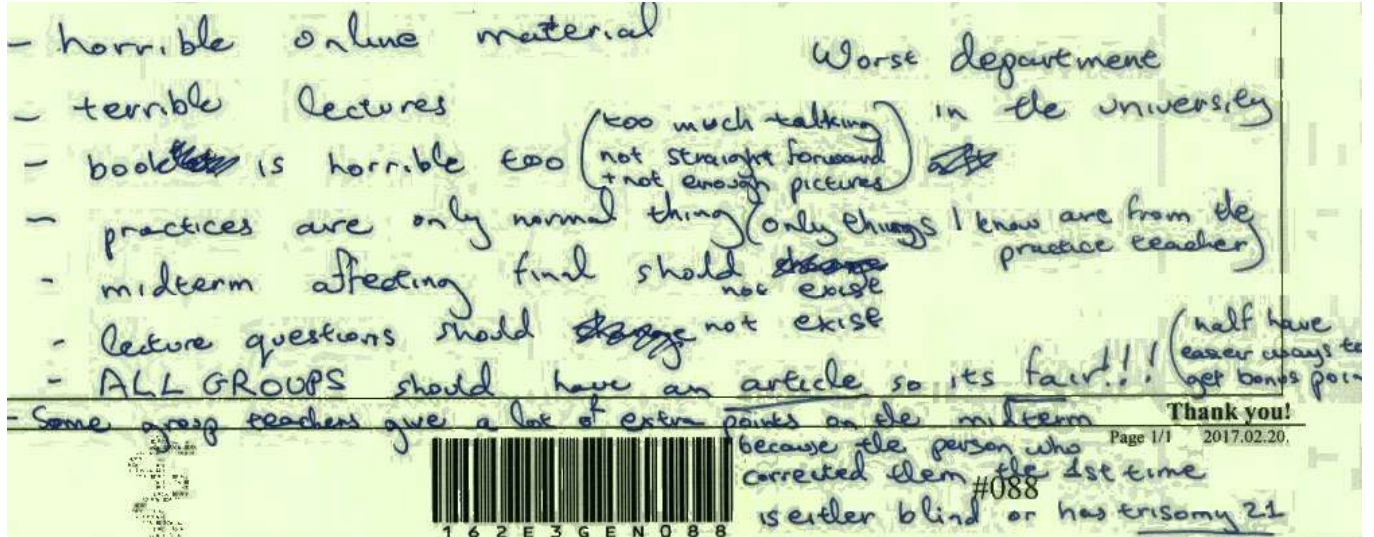 - horrible online material
Worst department
in the university
- terrible lectures
- book is horrible too (too much talking
not straight forward
+not enough pictures)
- practices are only normal thing (only things I know are from the
practice teacher)
- midterm affecting final should
not exist
- lecture questions should not exist
- ALL GROUPS should have an article so its fair!!! (half have
easier ways to
get bonus poin
- Some group teachers give a lot of extra points on the midterm
because the person who
corrected them the 1st time
is either blind or has trisomy 21
Thank you!
Page 1/1 2017.02.20.
#088
162E3GEN088